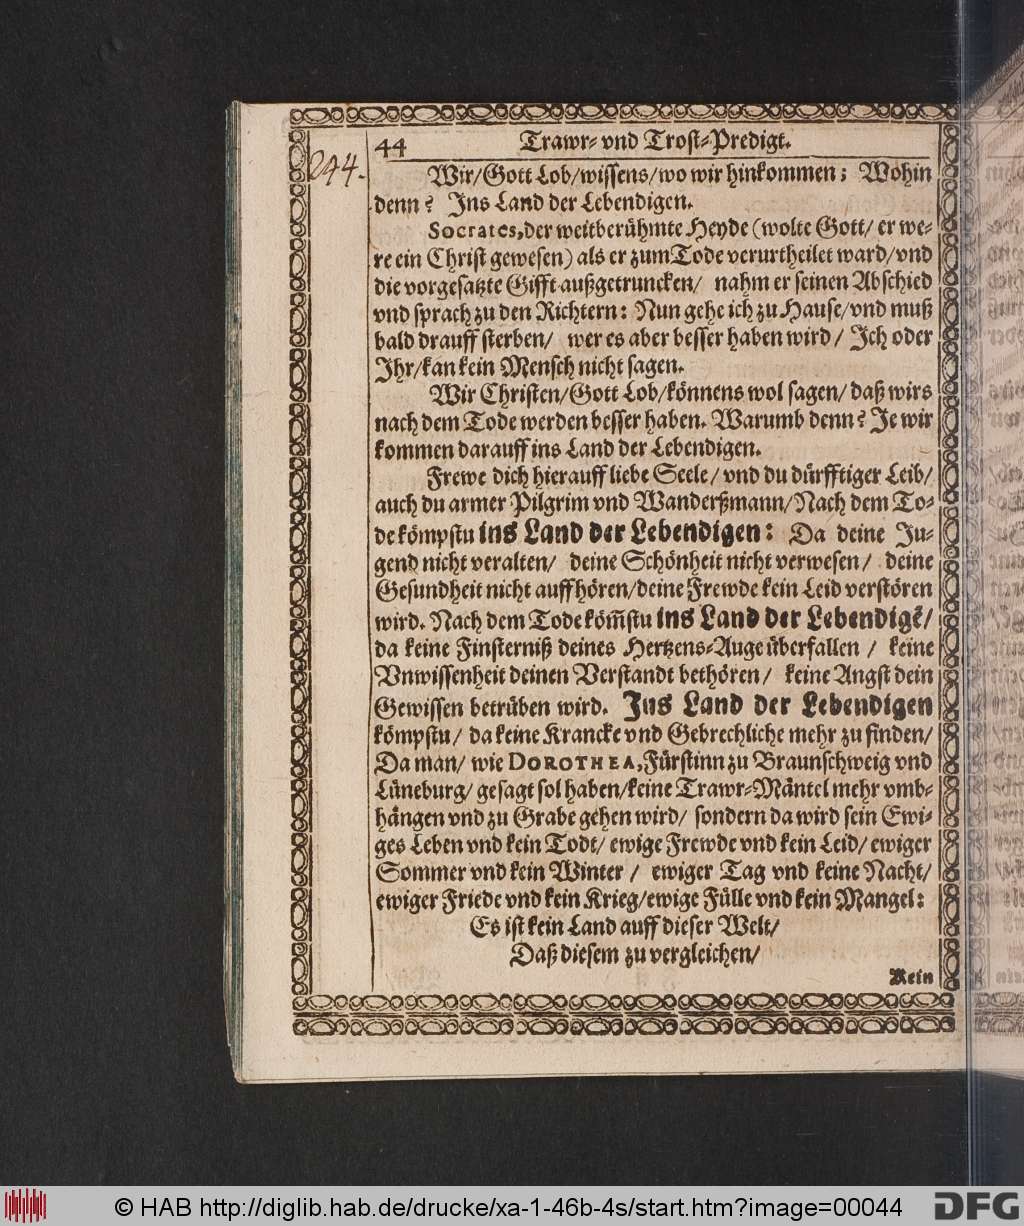 244.
44 Trawr- vnd Trost-Predigt.
Wir/Gott Lob/wissens/wo wir hinkommen; Wohin
denn? Ins Land der Lebendigen.
Socrates, der weitberühmte Heyde (wolte Gott/ er we-
re ein Christ gewesen) als er zum Tode verurtheilet ward/vnd
die vorgesatzte Gifft außgetruncken/ nahm er seinen Abschied
vnd sprach zu den Richtern: Nun gehe ich zu Hause/vnd muß
bald drauff sterben/ wer es aber besser haben wird/ Ich oder
Ihr/kan kein Mensch nicht sagen.
Wir Christen/Gott Lob/könnens wol sagen/ daß wirs
nach dem Tode werden besser haben. Warumb denn? Je wir
kommen darauff ins Land der Lebendigen.
Frewe dich hierauff liebe Seele/ vnd du dürfftiger Leib/
auch du armer Pilgrim vnd Wanderßmann/Nach dem To-
de kömpstu ins Land der Lebendigen: Da deine Ju-
gend nicht veralten/ deine Schönheit nicht verwesen/ deine
Gesundheit nicht auffhören/deine Frewde kein Leid verstören
wird. Nach dem Tode köm̃stu ins Land der Lebendigẽ/
da keine Finsterniß deines Hertzens-Auge überfallen / keine
Vnwissenheit deinen Verstandt bethören/ keine Angst dein
Gewissen betrüben wird. Ins Land der Lebendigen
kömpstu/ da keine Krancke vnd Gebrechliche mehr zu finden/
Da man/ wie DOROTHEA, Fürstinn zu Braunschweig vnd
Lüneburg/ gesagt sol haben/keine Trawr-Mäntel mehr vmb-
hängen vnd zu Grabe gehen wird/ sondern da wird sein Ewi-
ges Leben vnd kein Todt/ ewige Frewde vnd kein Leid/ ewiger
Sommer vnd kein Winter / ewiger Tag vnd keine Nacht/
ewiger Friede vnd kein Krieg/ewige Fülle vnd kein Mangel:
Es ist kein Land auff dieser Welt/
Daß diesem zu vergleichen/
Kein
© HAB http://diglib.hab.de/drucke/xa-1-46b-4s/start.htm?image=00044
DFG